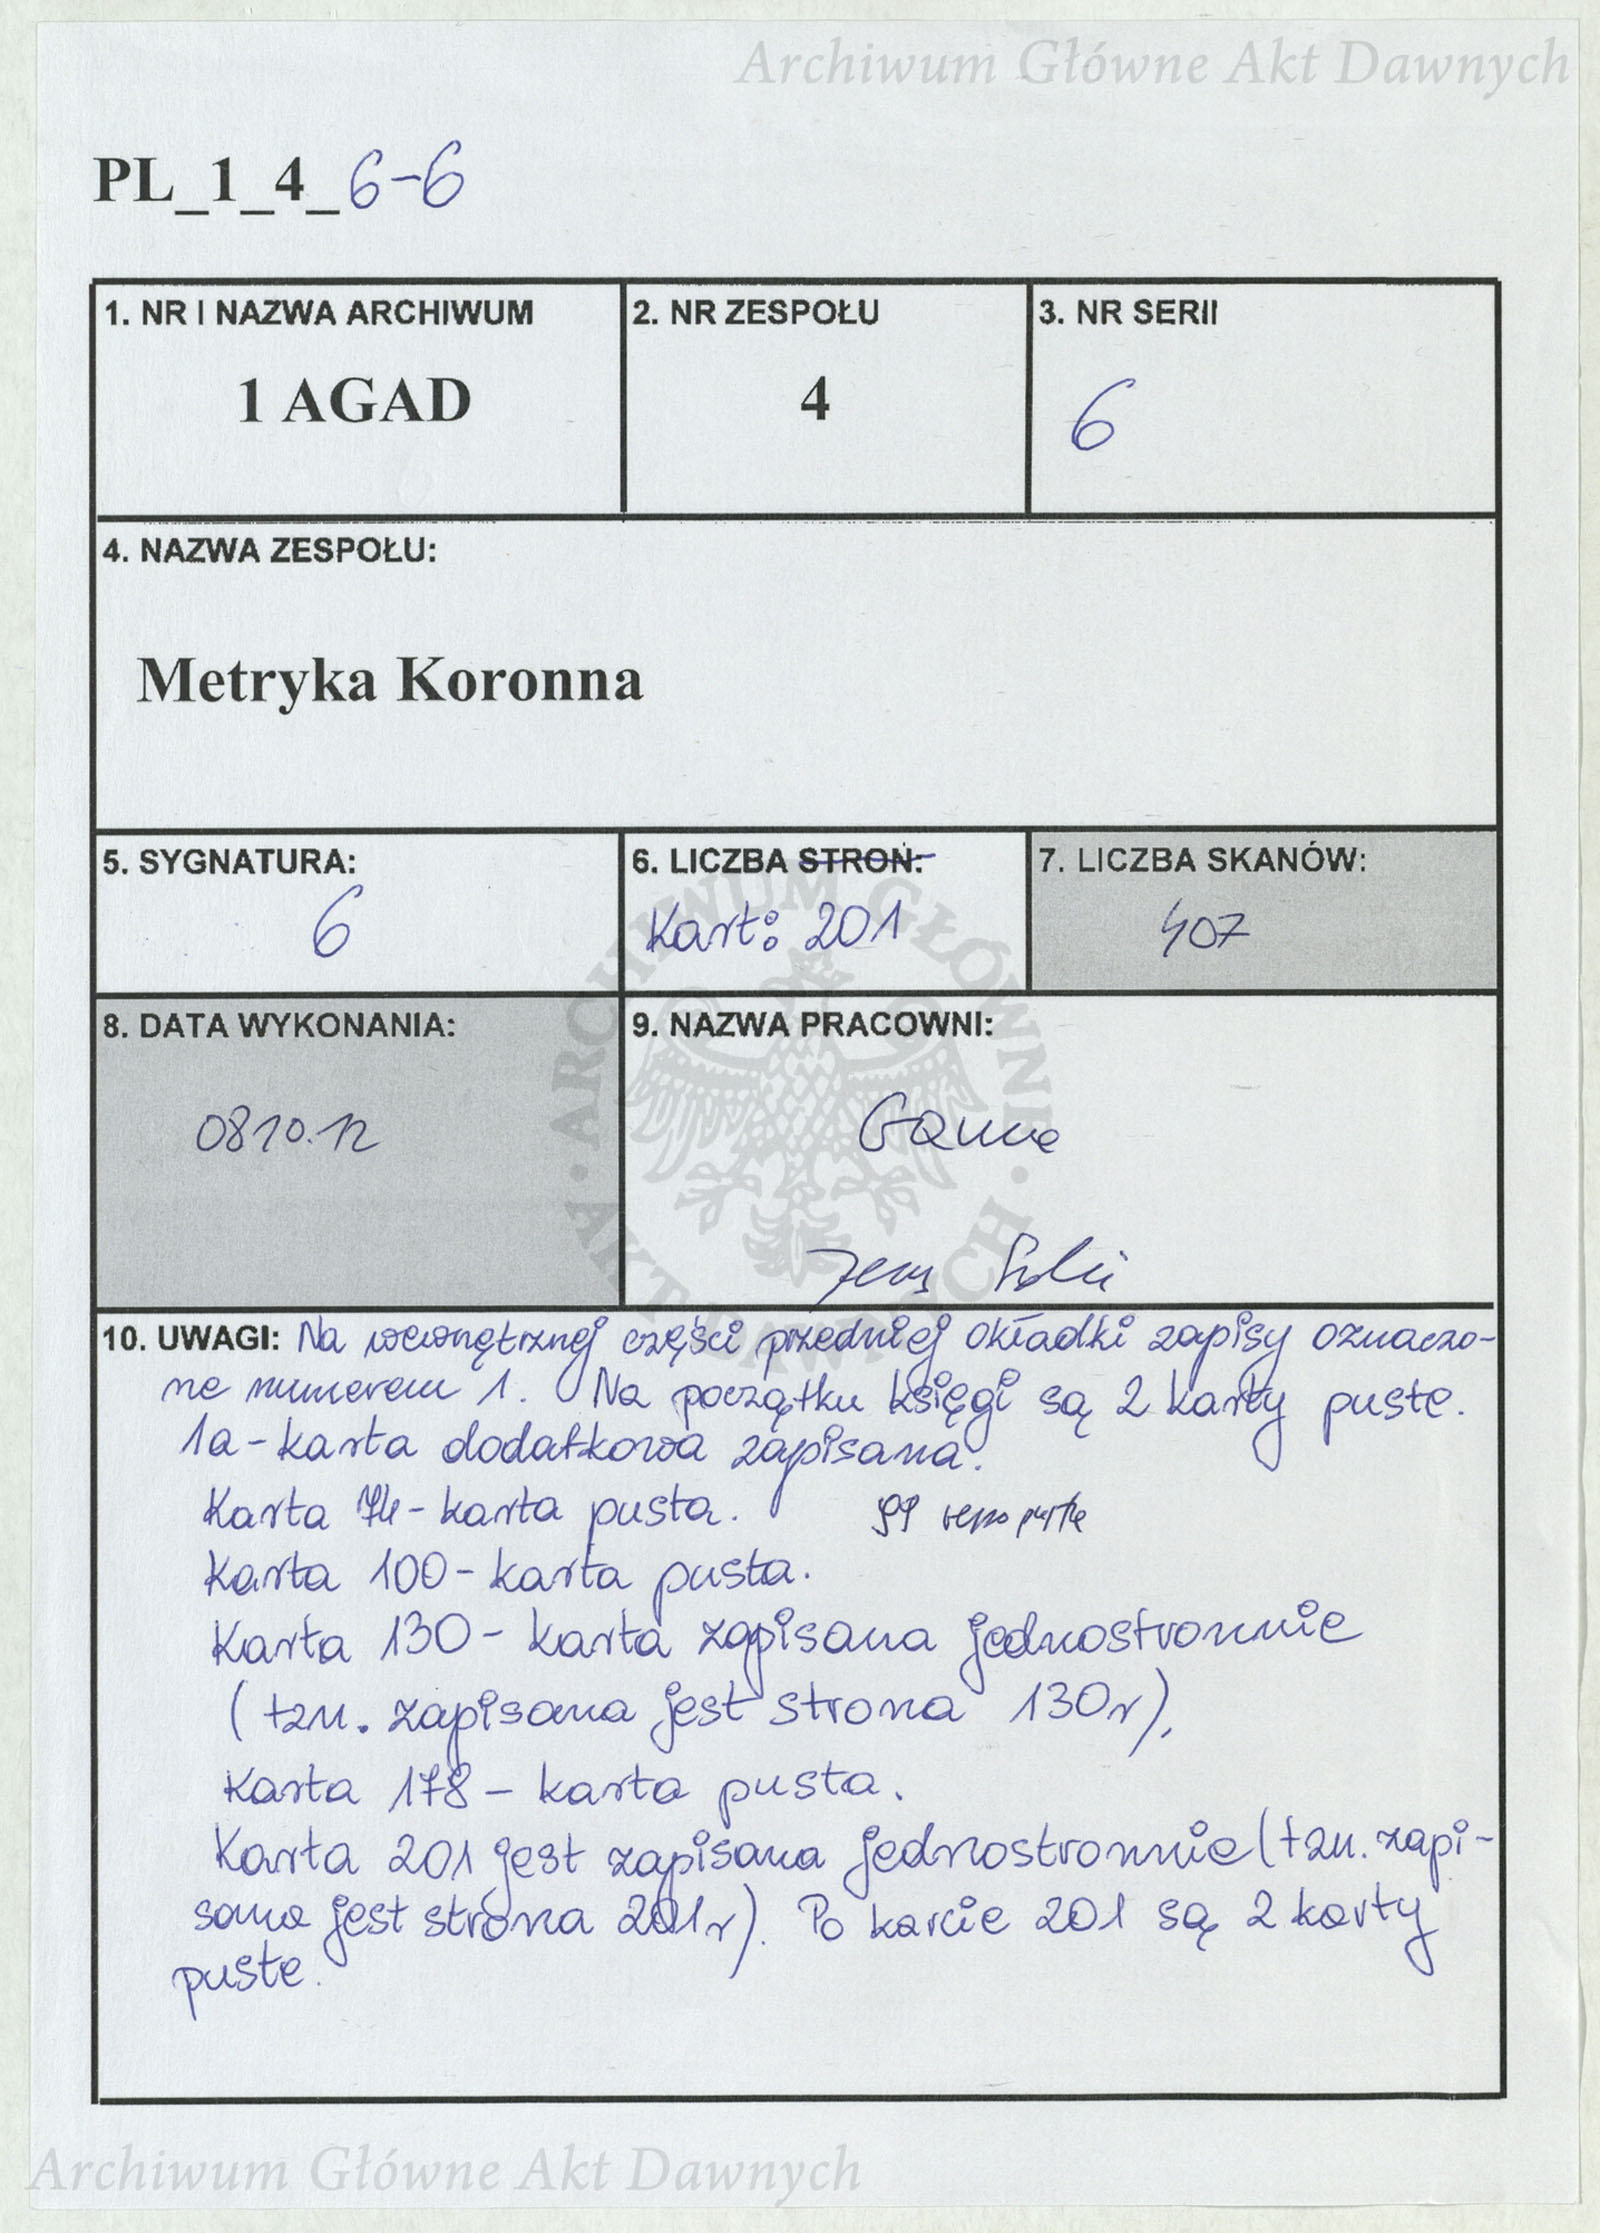 Archiwum Główne Akt Dawnych
PL_1_4_6-6
1. NR I NAZWA ARCHIWUM
1 AGAD
2. NR ZESPOŁU
4
3. NR SERII
6
4. NAZWA ZESPOŁU:
Metryka Koronna
5. SYGNATURA:
6
6. LICZBA STRON:
Kart: 201
7. LICZBA SKANÓW:
407
8. DATA WYKONANIA:
0810.12
9. NAZWA PRACOWNI:
ARCHIWUM GŁÓWNE AKT DAWNYCH
10. UWAGI: Na wewnętrznej części przedniej okładki zapisy oznaczo-
ne numerem 1. Na początku księgi są 2 karty puste.
1a - karta dodatkowa zapisana.
Karta 74 - karta pusta. 99 verso
Karta 100 - karta pusta.
Karta 130 - karta zapisana jednostronnie
(tzn. zapisana jest strona 130r).
Karta 178 - karta pusta.
Karta 201 jest zapisana jednostronnie (tzn. zapi-
sana jest strona 201r). Po karcie 201 są 2 karty
puste.
Archiwum Główne Akt Dawnych